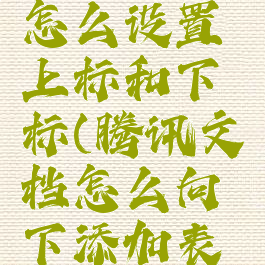 怎么设置
上标和下
标(腾讯文
档怎么向
下添加表